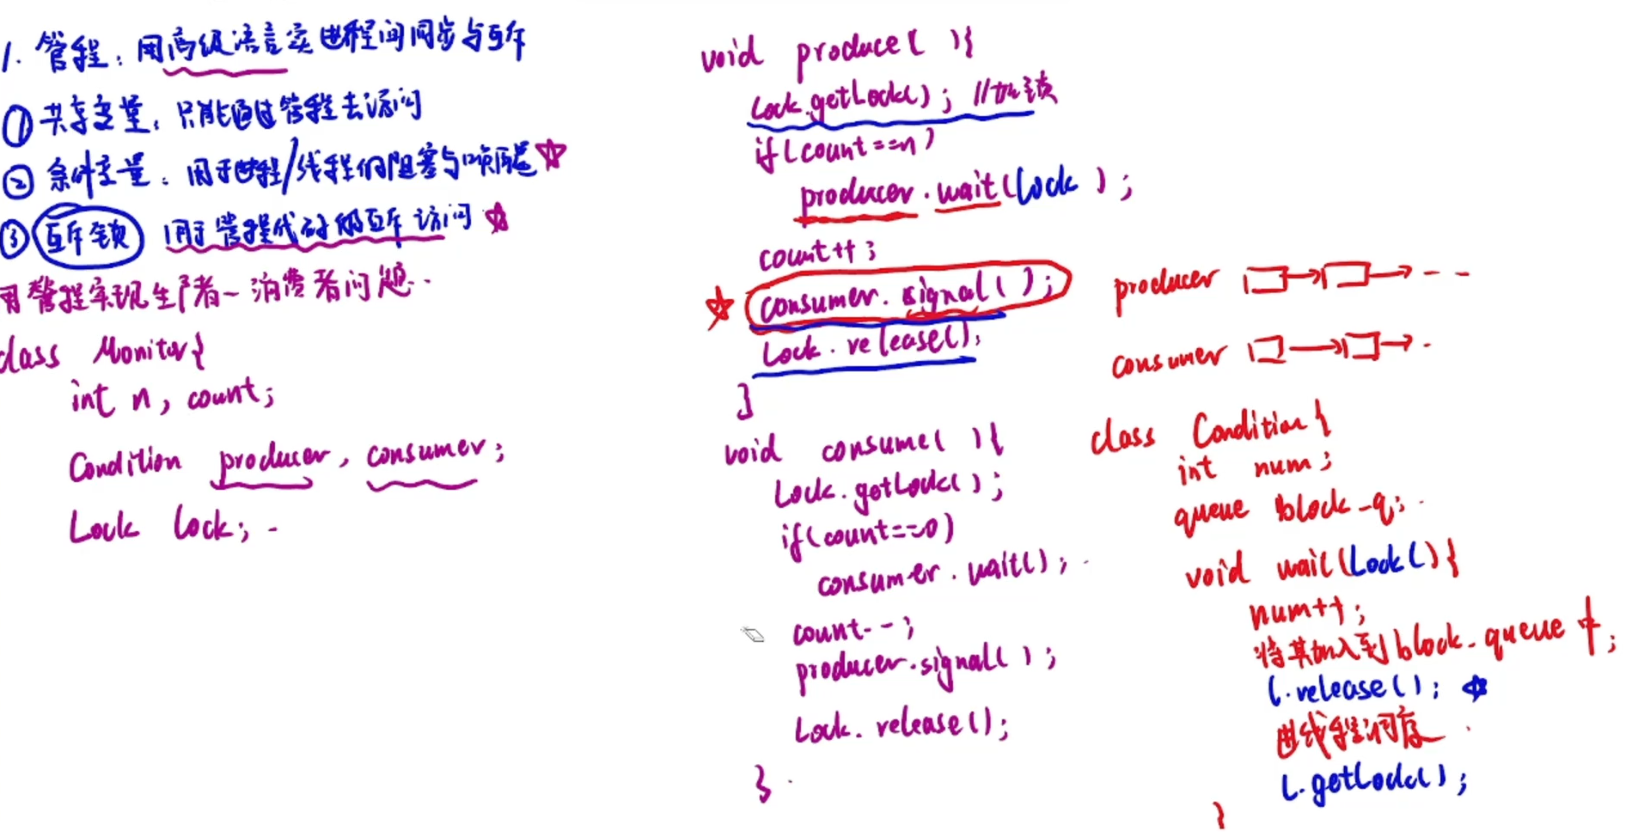 1. 管程：用高级语言实进程间同步与互斥
① 共享变量：只能通过管程去访问
② 条件变量：用于进程/线程的阻塞与唤醒 ☆
③ 互斥锁 用于管程代码的互斥访问 ☆
用管程实现生产者-消费者问题.
class Monitor{
int n, count;
Condition producer, consumer;
Lock lock;
void produce( ){
Lock.getLock(); //加锁
if(count==n)
producer.wait(lock );
count++;
☆ consumer.signal();
Lock.release();
}
void consume( ){
Lock.getLock();
if(count==0)
consumer.wait();
count--;
producer.signal();
Lock.release();
}
producer
consumer
class Condition{
int num;
queue block_q;
void wait(Lock l){
num++;
将其加入到block-queue中;
l.release(); ☆
进线程调度
l.getLock();
}